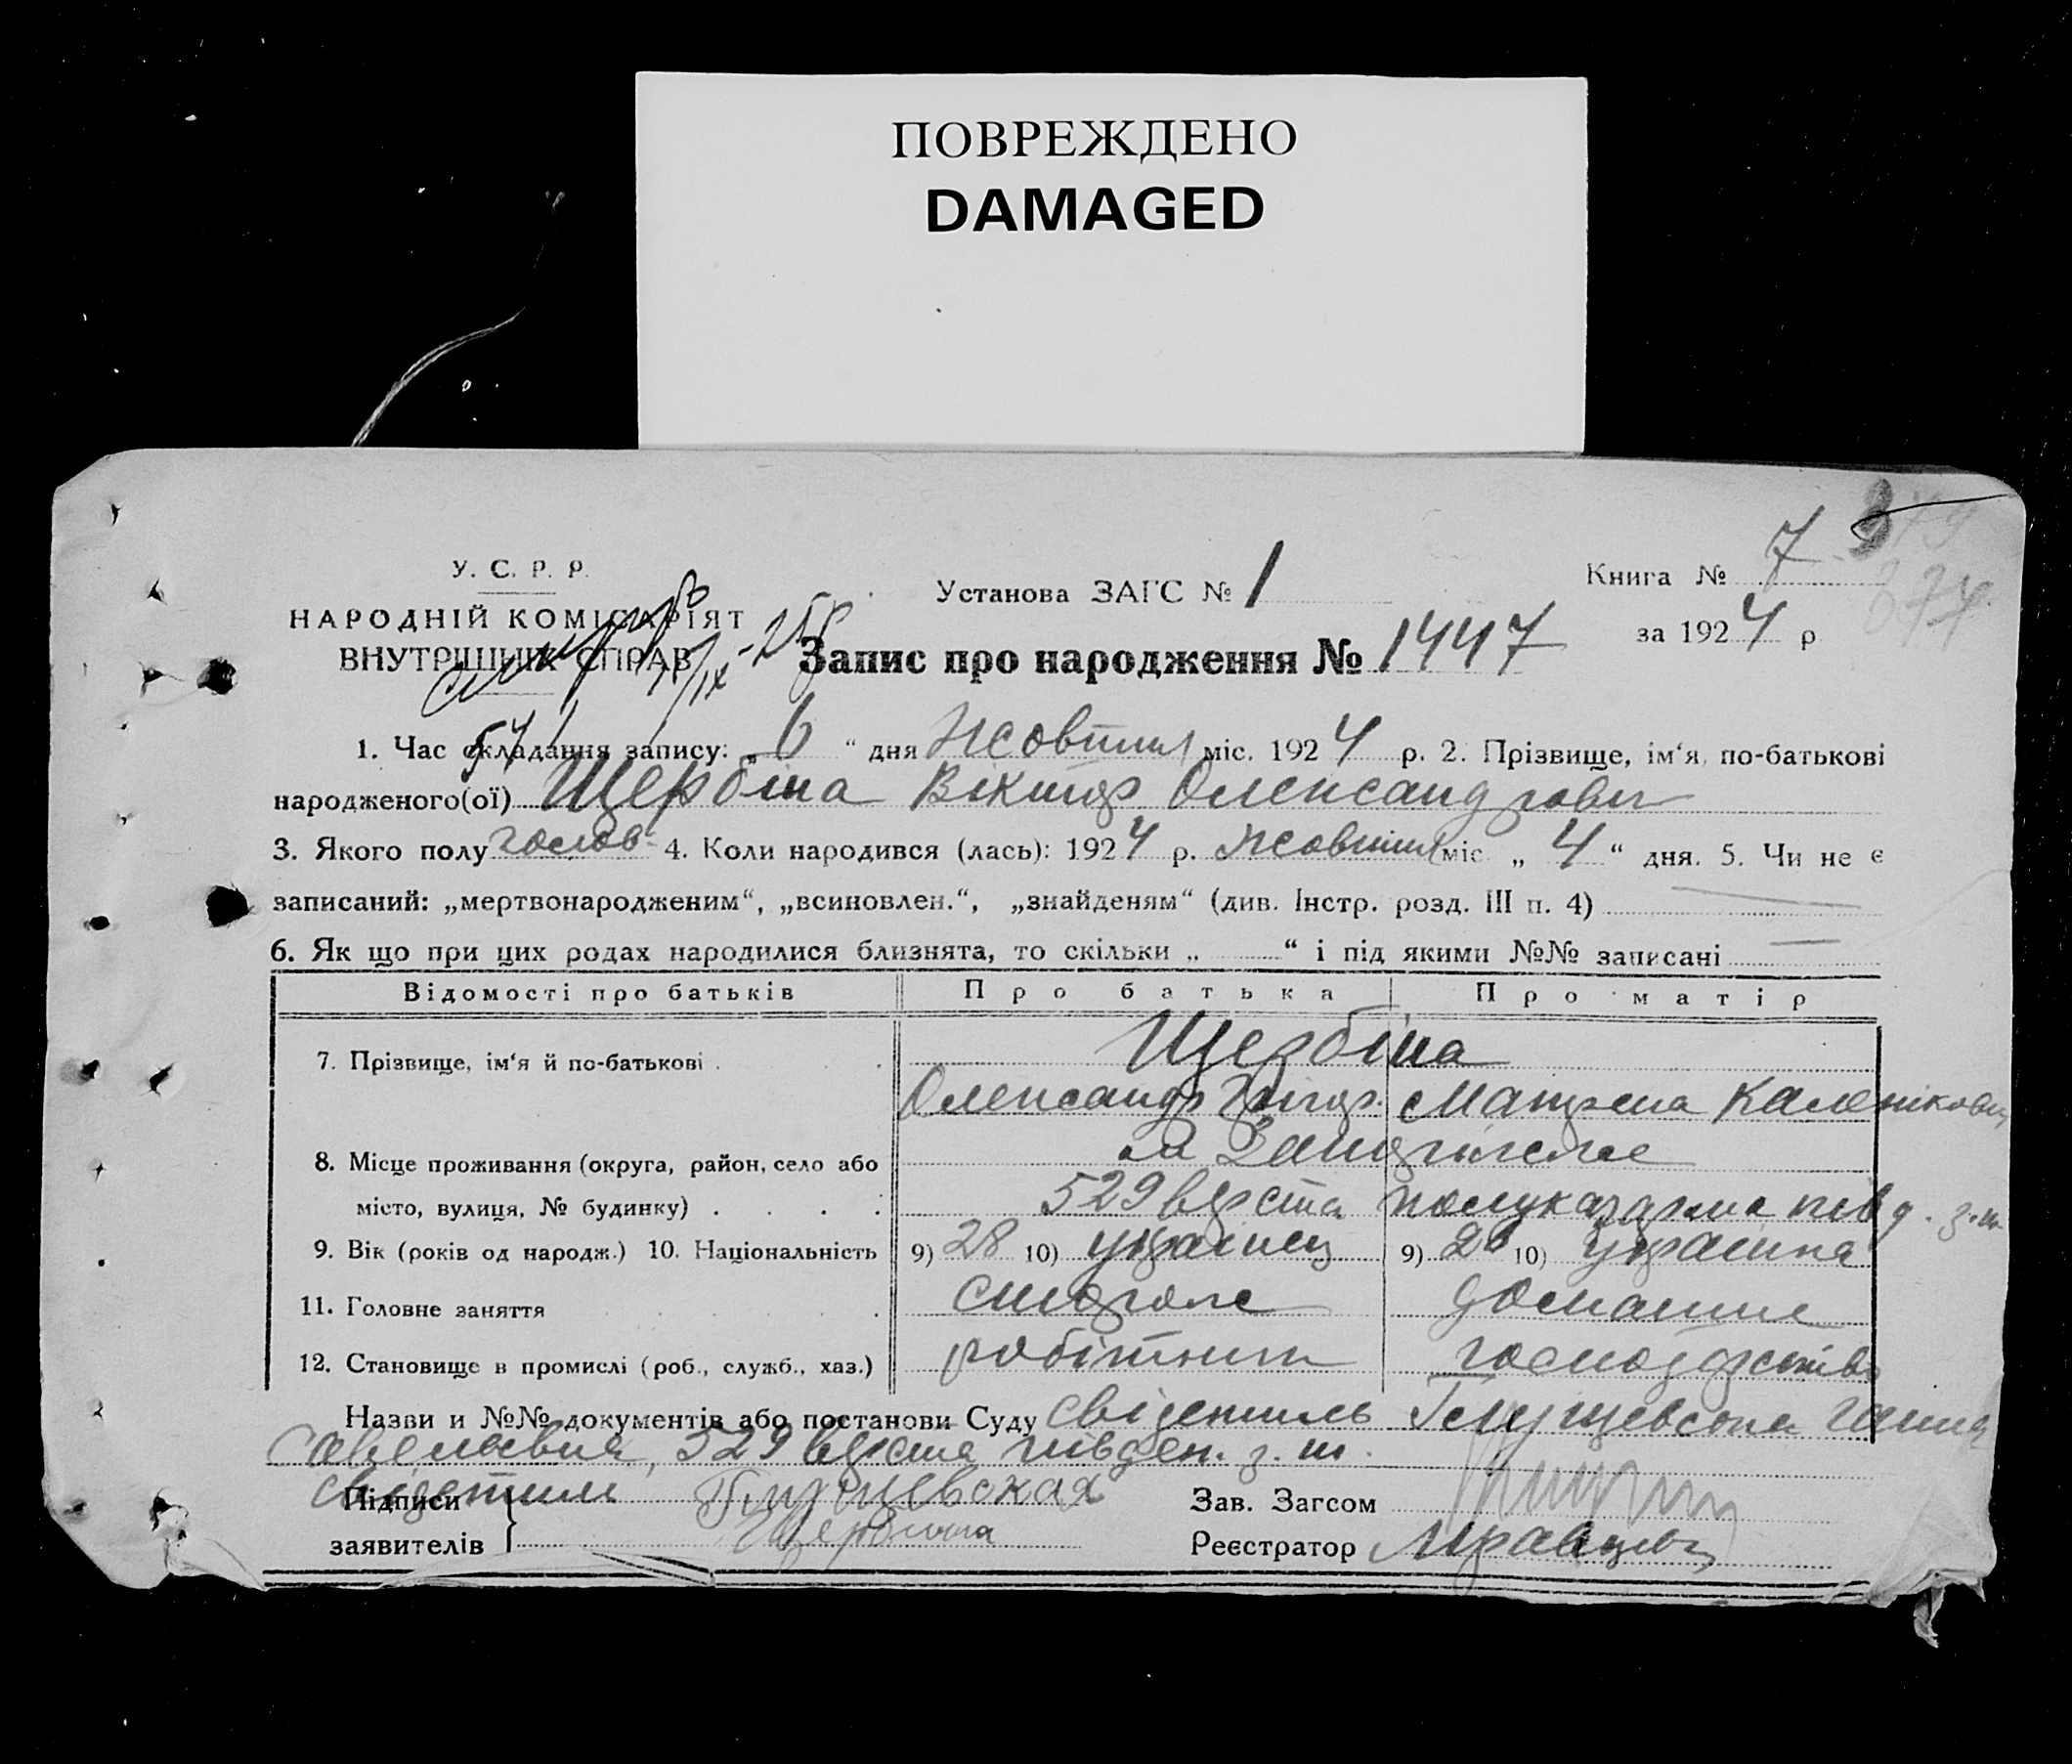 ПОВРЕЖДЕНО
DAMAGED
У. С. Р. Р.
НАРОДНІЙ КОМІСАРІЯТ
ВНУТРІШНІХ СПРАВ
Установа ЗАГС № 1
Книга № 7
за 1924 р
Запис про народження № 1447
1. Час складання запису: „ 6 “ дня Жовтня міс. 1924 р. 2. Прізвище, ім‘я, по-батькові
народженого(ої) Щербіна Віктор Олександрович
3. Якого полу 4. Коли народився (лась): 1924 р. Жовтня міс „ 4 “ дня. 5. Чи не є
записаний: „мертвонародженим“, „всиновлен.“, „знайденям“ (див. Інстр. розд. III п. 4)
6. Як що при цих родах народилися близнята, то скільки „ “ і під якими №№ записані
Відомості про батьків Про батька Про матір
7. Прізвище, ім‘я й по-батькові . Щербіна
Олександр Григор. Мотрона Каленіковна
8. Місце проживання (округа, район, село або
місто, вулиця, № будинку) . . . . 529 верста півд. з. ш.
9. Вік (років од народж.) 10. Національність 9) 28 10) українец 9) 26 10) українка
11. Головне заняття столяр домашнє
12. Становище в промислі (роб., служб., хаз.) робітник господарство
Назви и №№ документів або постанови Суду свідетель Ганна
Савельевна, 529 верста півден. з. ш.
Підписи
заявителів Щербина
Зав. Загсом
Реєстратор